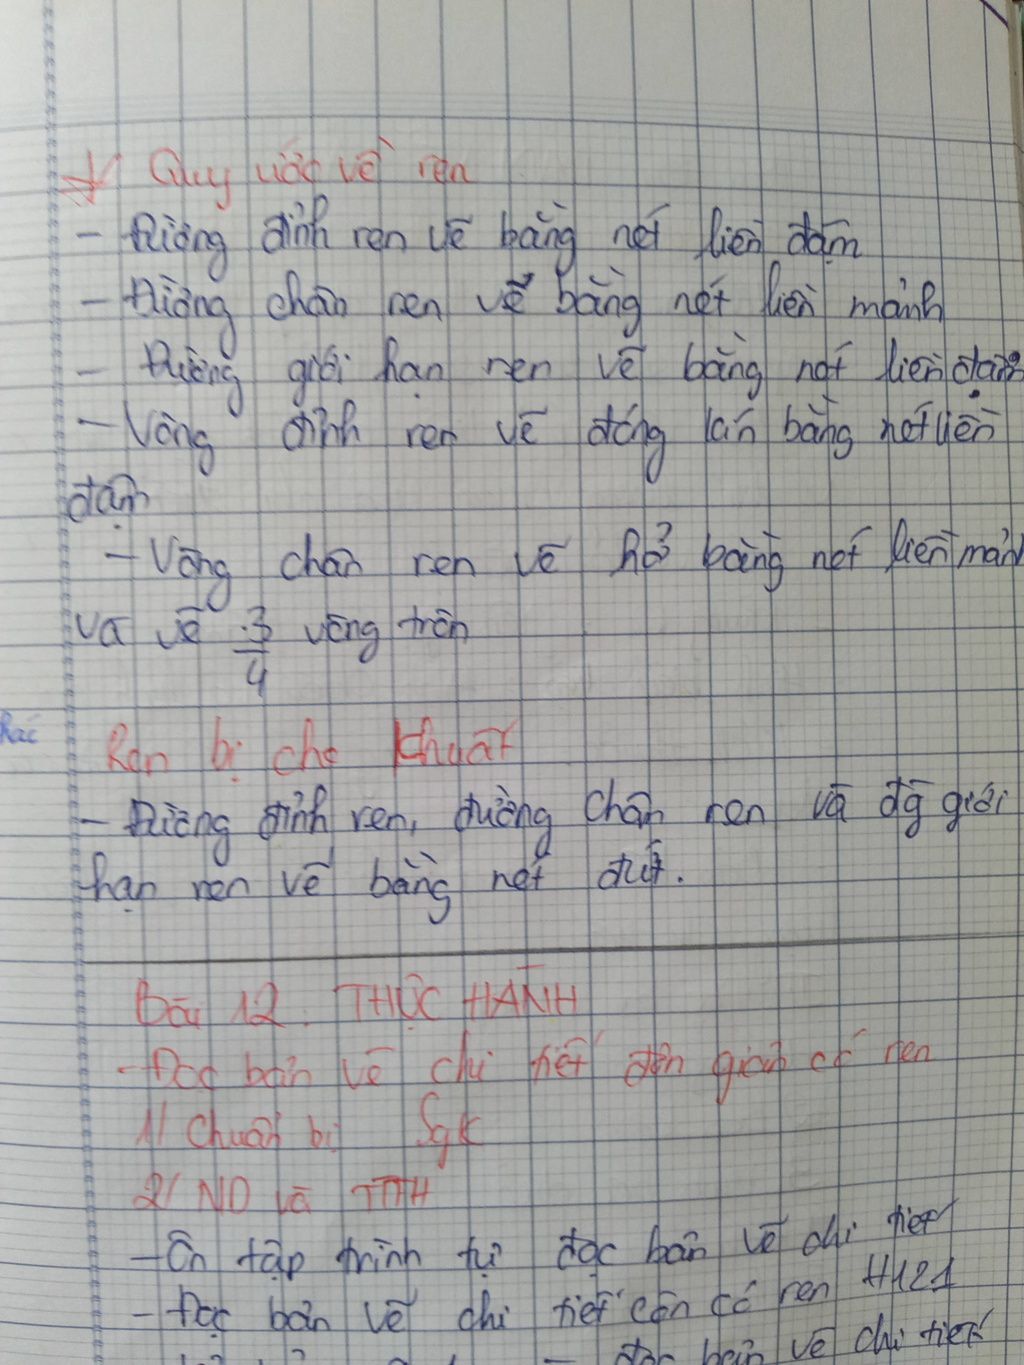 * Quy ước về ren
- Đường đỉnh ren vẽ bằng nét liền đậm
- Đường chân ren vẽ bằng nét liền mảnh
- Đường giới hạn ren vẽ bằng nét liền đậm
- Vòng đỉnh ren vẽ đóng kín bằng nét liền
đậm
- Vòng chân ren vẽ hở bằng nét liền mản
và vẽ 3/4 vòng tròn
Ren bị che khuất
- Đường đỉnh ren, đường chân ren và đg giới
hạn ren vẽ bằng nét đứt.
Bài 12. THỰC HÀNH
- Đọc bản vẽ chi tiết đơn giản có ren
1/ Chuẩn bị Sgk
2/ ND và TTTH
- Ôn tập trình tự đọc bản vẽ chi tiết
- Đọc bản vẽ chi tiết côn có ren H12.1
đọc bản vẽ chi tiết